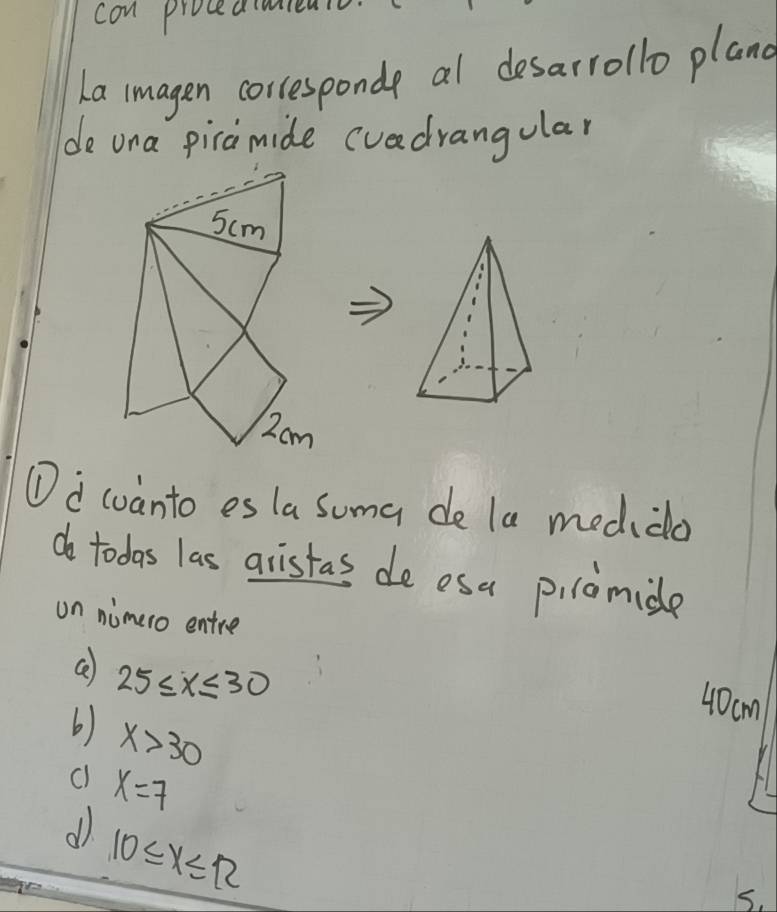 con procedimiento.
La imagen corresponde al desarrollo plano
de una pirámide cuadrangular
5cm
⇒
2cm
① ¿ cuánto es la suma de la medida
de todas las aristas de esa pirámide
un número entre
a) 25 ≤ x ≤ 30
b) x > 30
c) x = 7
d) 10 ≤ x ≤ 12
40cm
5.